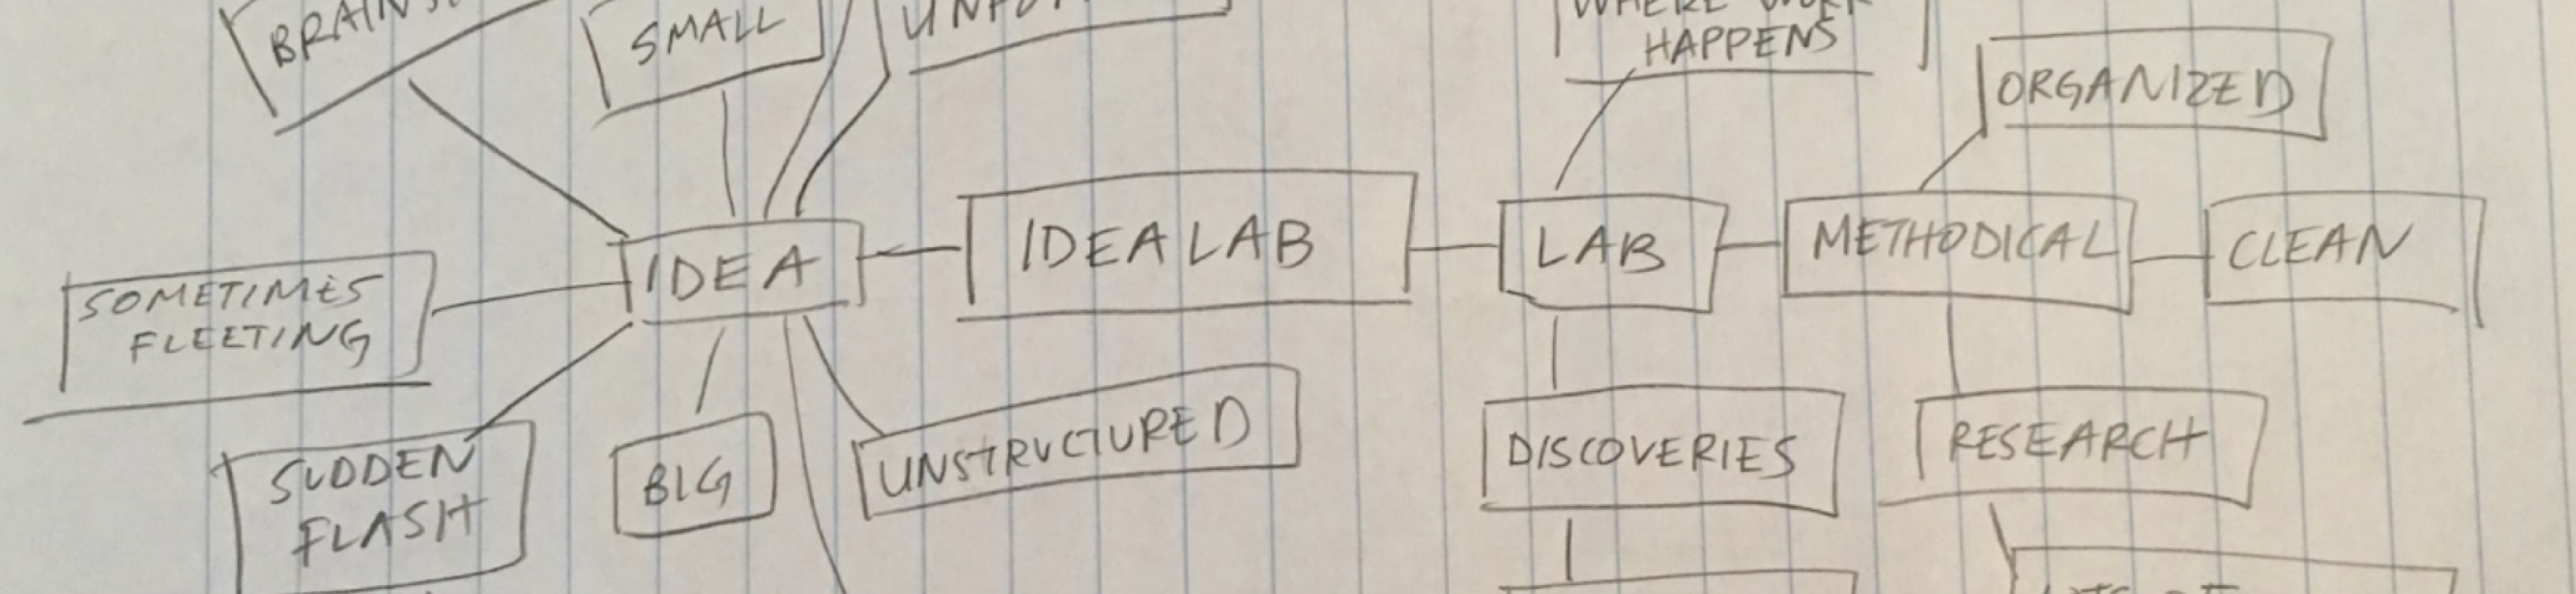 SMALL
WHERE WORK
HAPPENS
ORGANIZED
IDEA
IDEALAB
LAB
METHODICAL
CLEAN
SOMETIMES
FLEETING
SUDDEN
FLASH
BIG
UNSTRUCTURED
DISCOVERIES
RESEARCH